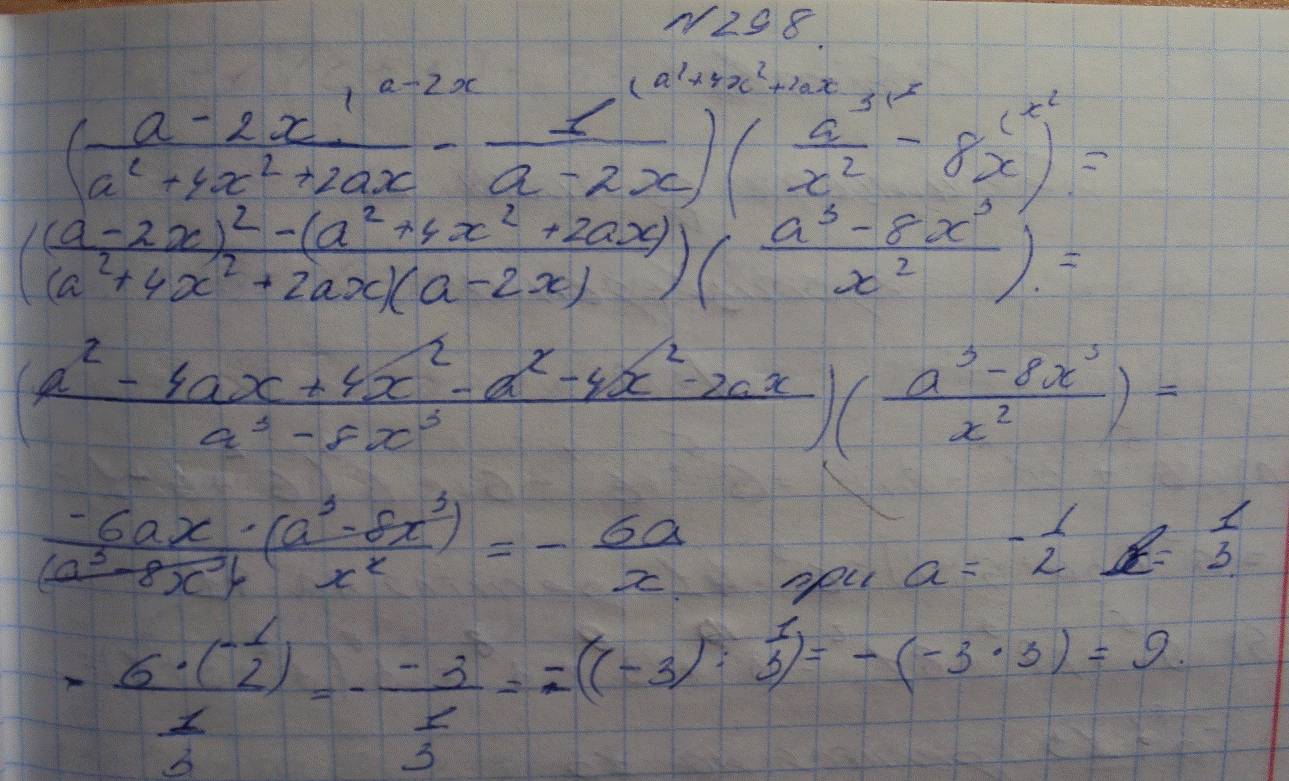 №298.
( (a-2x)/(a²+4x²+2ax) (a-2x - 1/(a-2x) (a²+4x²+2ax ) ( a³/x² (1 - 8x (x² ) =
( ((a-2x)² - (a²+4x²+2ax))/((a²+4x²+2ax)(a-2x)) ) ( (a³-8x³)/x² ) =
( (a² - 4ax + 4x² - a² - 4x² - 2ax)/(a³-8x³) ) ( (a³-8x³)/x² ) =
(-6ax · (a³-8x³))/((a³-8x³) · x²) = - 6a/x при a = -1/2 x = 1/3.
- (6·(-1/2))/(1/3) = - (-3)/(1/3) = -((-3) : 1/3) = -(-3·3) = 9.